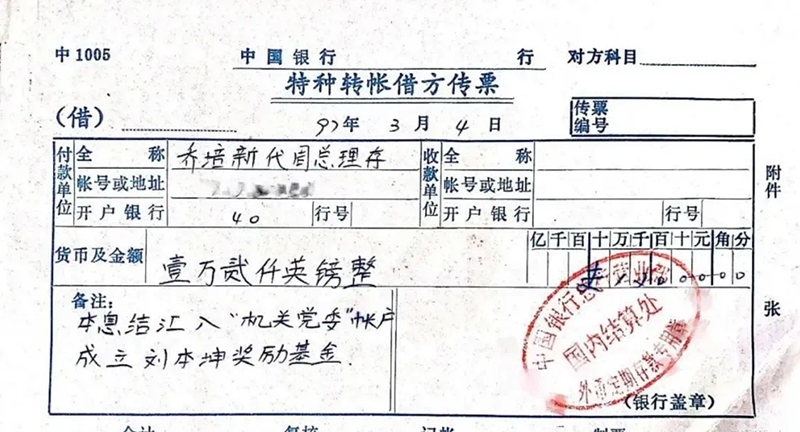 中1005 中国银行 行 对方科目
特种转帐借方传票
(借) 97年 3月 4日
传票
编号
付款单位
全称 乔培新代周总理存
帐号或地址
开户银行 40 行号
收款单位
全称
帐号或地址
开户银行 行号
附件
货币及金额 壹万贰仟英镑整
亿千百十万千百十元角分
备注:
本息结汇入“机关党委”帐户
成立刘本坤奖励基金.
中国银行总行营业部
国内结算处
外币定期存款专用章
(银行盖章)
张